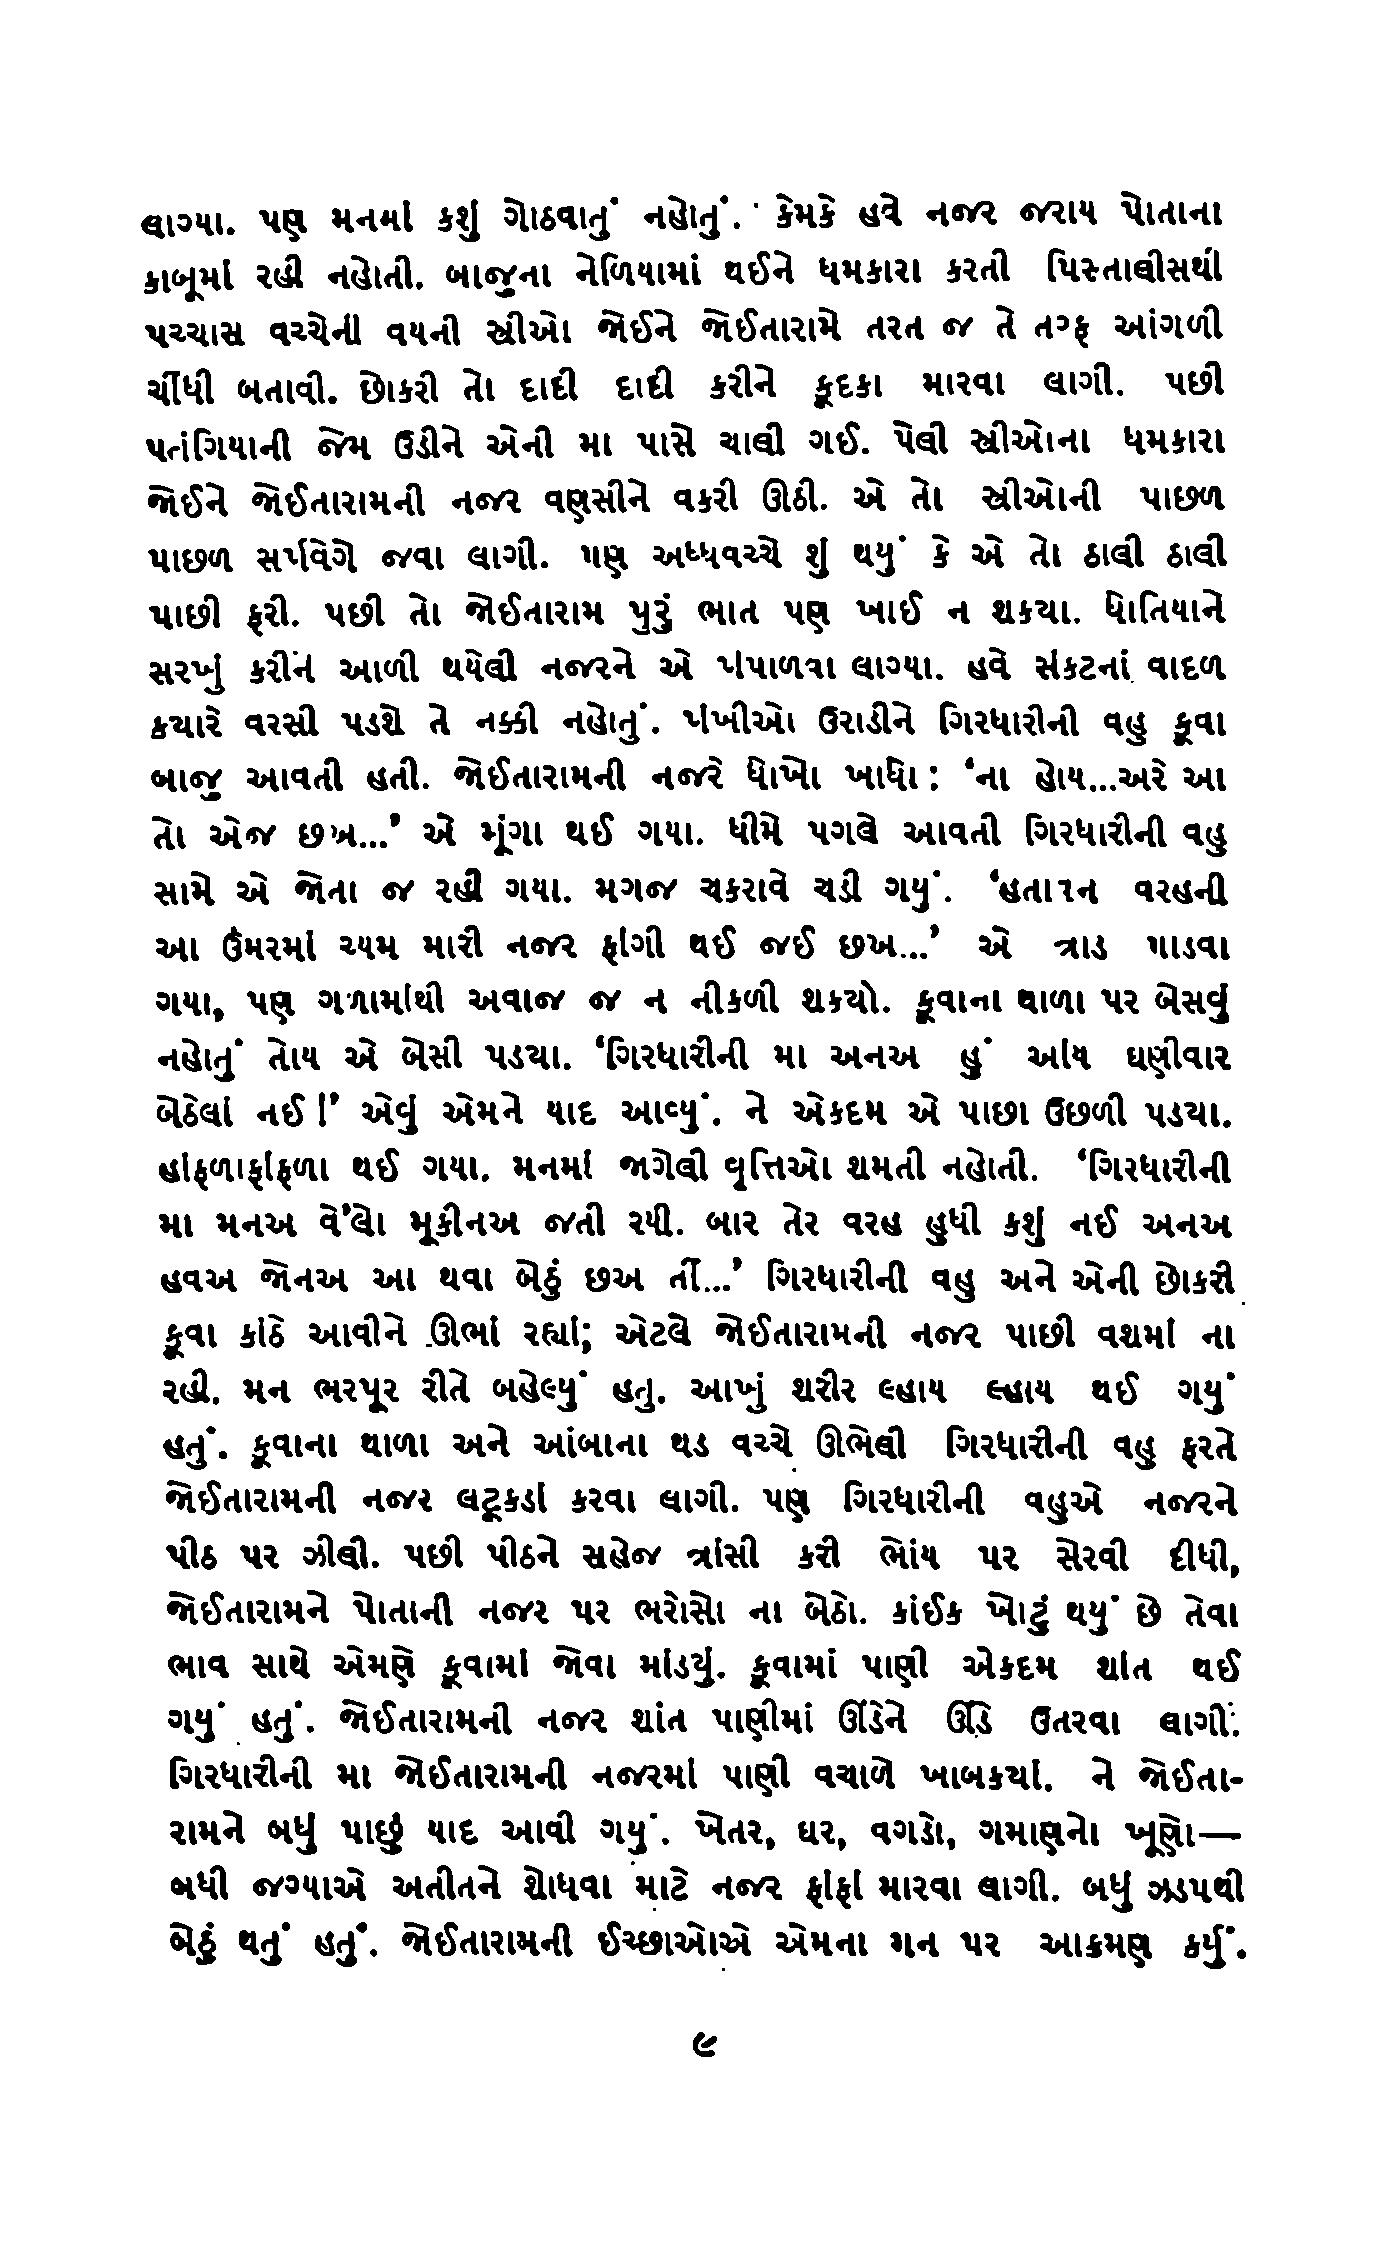 લાગ્યા. પણ મનમાં કશું ગોઠવાતું નહોતું. કેમકે હવે નજર જરાય પોતાના
કાબૂમાં રહી નહોતી. બાજુના નેળિયામાં થઈને ધમકારા કરતી પિસ્તાલીસથી
પચ્ચાસ વચ્ચેની વયની સ્રીઓ જોઈને જોઈતારામે તરત જ તે તરફ આંગળી
ચીંધી બતાવી. છોકરી તો દાદી દાદી કરીને કૂદકા મારવા લાગી. પછી
પતંગિયાની જેમ ઉડીને એની મા પાસે ચાલી ગઈ. પેલી સ્રીઓના ધમકારા
જોઈને જોઈતારામની નજર વણસીને વકરી ઊઠી. એ તો સ્રીઓની પાછળ
પાછળ સર્પવેગે જવા લાગી. પણ અધ્ધવચ્ચે શું થયું કે એ તો ઠાલી ઠાલી
પાછી ફરી. પછી તો જોઈતારામ પુરું ભાત પણ ખાઈ ન શકયા. ધોતિયાને
સરખું કરીને આળી થયેલી નજરને એ પંપાળવા લાગ્યા. હવે સંકટનાં વાદળ
કયારે વરસી પડશે તે નક્કી નહોતું. પંખીઓ ઉરાડીને ગિરધારીની વહુ કૂવા
બાજુ આવતી હતી. જોઈતારામની નજરે ધોખો ખાધો : ‘ના હોય...અરે આ
તો એજ છઅ...’ એ મૂંગા થઈ ગયા. ધીમે પગલે આવતી ગિરધારીની વહુ
સામે એ જોતા જ રહી ગયા. મગજ ચકરાવે ચડી ગયું. ‘હતારન વરહની
આ ઉંમરમાં ચ્યમ મારી નજર ફાંગી થઈ જઈ છખ...’ એ ત્રાડ પાડવા
ગયા, પણ ગળામાંથી અવાજ જ ન નીકળી શકયો. કૂવાના થાળા પર બેસવું
નહોતું તોય એ બેસી પડયા. ‘ગિરધારીની મા અનઅ હું આંય ઘણીવાર
બેઠેલાં નઈ !’ એવું એમને યાદ આવ્યું. ને એકદમ એ પાછા ઉછળી પડયા.
હાંફળાફાંફળા થઈ ગયા. મનમાં જાગેલી વૃત્તિઓ શમતી નહોતી. ‘ગિરધારીની
મા મનઅ વે’લો મૂકીનઅ જતી રયી. બાર તેર વરહ હુધી કશું નઈ અનઅ
હવઅ જોનઅ આ થવા બેઠું છઅ તીં...’ ગિરધારીની વહુ અને એની છોકરી
કૂવા કાંઠે આવીને ઊભાં રહ્યાં; એટલે જોઈતારામની નજર પાછી વશમાં ના
રહી. મન ભરપૂર રીતે બહેલ્યું હતુ. આખું શરીર લ્હાય લ્હાય થઈ ગયું
હતું. કૂવાના થાળા અને આંબાના થડ વચ્ચે ઊભેલી ગિરધારીની વહુ ફરતે
જોઈતારામની નજર લટૂકડાં કરવા લાગી. પણ ગિરધારીની વહુએ નજરને
પીઠ પર ઝીલી. પછી પીઠને સહેજ ત્રાંસી કરી ભોંય પર સેરવી દીધી,
જોઈતારામને પોતાની નજર પર ભરોસો ના બેઠો. કાંઈક ખોટું થયું છે તેવા
ભાવ સાથે એમણે કૂવામાં જોવા માંડયું. કૂવામાં પાણી એકદમ શાંત થઈ
ગયું હતું. જોઈતારામની નજર શાંત પાણીમાં ઊંડેને ઊંડે ઉતરવા લાગી.
ગિરધારીની મા જોઈતારામની નજરમાં પાણી વચાળે ખાબકયાં. ને જોઈતા-
રામને બધું પાછું યાદ આવી ગયું. ખેતર, ઘર, વગડો, ગમાણનો ખૂણો—
બધી જગ્યાએ અતીતને શોધવા માટે નજર ફાંફાં મારવા લાગી. બધું ઝડપથી
બેઠું થતું હતું. જોઈતારામની ઈચ્છાઓએ એમના મન પર આક્રમણ કર્યું.
૯